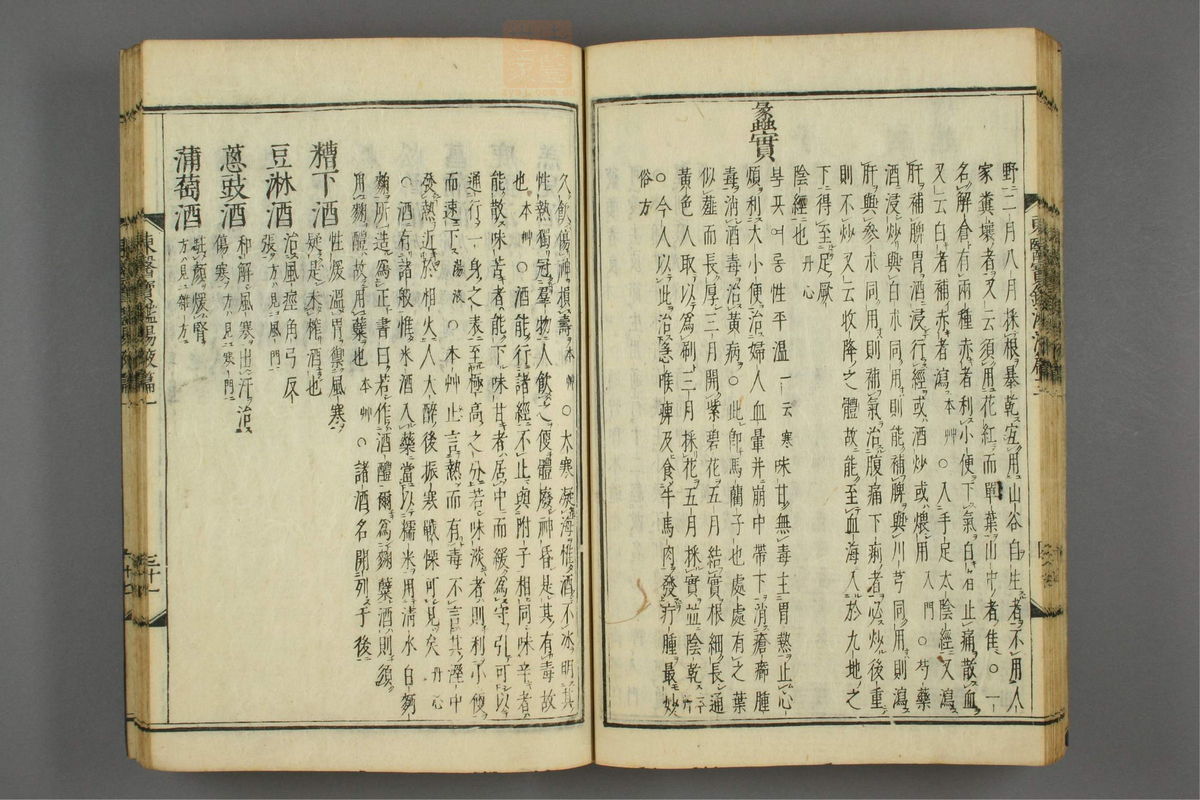 野二月八月採根暴乾宜用山谷自生者不用人
家糞壤者又云須用花紅而單葉山中者佳○一
名解倉有兩種赤者利小便下氣白者止痛散血
又云白者補赤者瀉本艸○入手足太陰經又瀉
肝補脾胃酒浸行經或酒炒或煨用入門○芍藥
酒浸炒與白朮同用則能補脾與川芎同用則瀉
肝與參朮同用則補氣治腹痛下痢者必炒後重
則不炒又云收降之體故能至血海入於九地之
下得至足厥
陰經也丹心
蠡實
붇곳여름性平溫一云寒味甘無毒主胃熱止心
煩利大小便治婦人血暈并崩中帶下消瘡癤腫
毒消酒毒治黃病○此卽馬藺子也處處有之葉
似薤而長厚三月開紫碧花五月結實根細長通
黃色人取以爲刷三月採花五月採實並陰乾本艸
○今人以此治急喉痺及食牛馬肉發疔腫最妙
俗方
久飮傷神損壽本艸○大寒凝海惟酒不冰明其
性熱獨冠群物人飮之便體廢神昏是其有毒故
也本艸○酒能行諸經不止與附子相同味辛者
能散味苦者能下味甘者居中而緩爲導引可以
通行一身之表至極高之分若味淡者則利小便
而速下湯液○本艸止言熱而有毒不言其溼中
發熱近於相火人大醉後振寒戰慄可見矣丹心
○酒有諸般惟米酒入藥當以糯米用淸水白麪
麴所造爲正書曰若作酒醴爾爲麴糱酒則須
用麴醴故用糱也本艸○諸酒名開列于後
糟下酒 性煖溫胃禦風寒
疑是未榨酒也
豆淋酒 治風痙角弓反
張方見風門
蔥豉酒 和解風寒出汗治
傷寒方見寒門
蒲萄酒 駐顏煖腎
方見雜方
東醫寶鑑湯液篇一
三十一